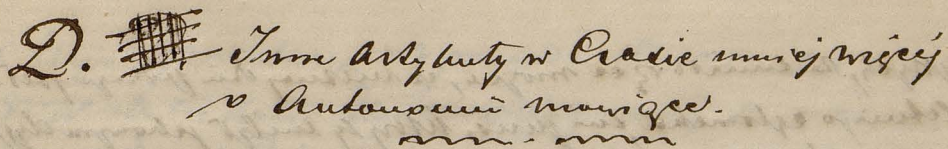 D. Inne Artykuły w Czasie mniej więcej
o Autonomii mowiące.